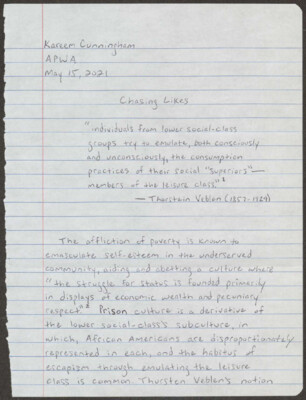 Kareem Cunningham
APWA
May 15, 2021
Chasing Likes
"individuals from lower social-class
groups try to emulate, both consciously
and unconsciously, the consumption
practices of their social "superiors"—
members of the leisure class."¹
— Thorstein Veblen (1857-1929)
The affliction of poverty is known to
emasculate self-esteem in the underserved
community, aiding and abetting a culture where
"the struggle for status is founded primarily
in displays of economic wealth and pecuniary
respect."² Prison culture is a derivative of
the lower social-class's subculture, in
which, African Americans are disproportionately
represented in each, and the habitus of
escapism through emulating the leisure
class is common. Thorsten Veblen's notion